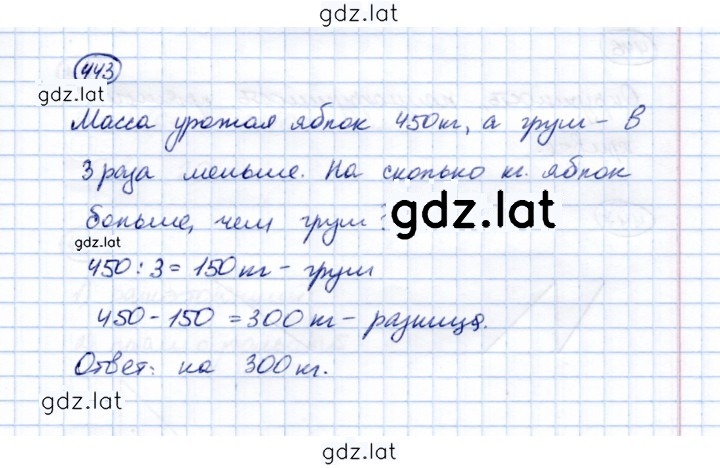 gdz.lat
443
gdz.lat
Масса урожая яблок 450кг, а груш - в
3 раза меньше. На сколько кг. яблок
больше, чем груш?
gdz.lat
gdz.lat
450 : 3 = 150 кг - груш
450 - 150 = 300 кг - разница.
Ответ: на 300 кг.
gdz.lat
gdz.lat